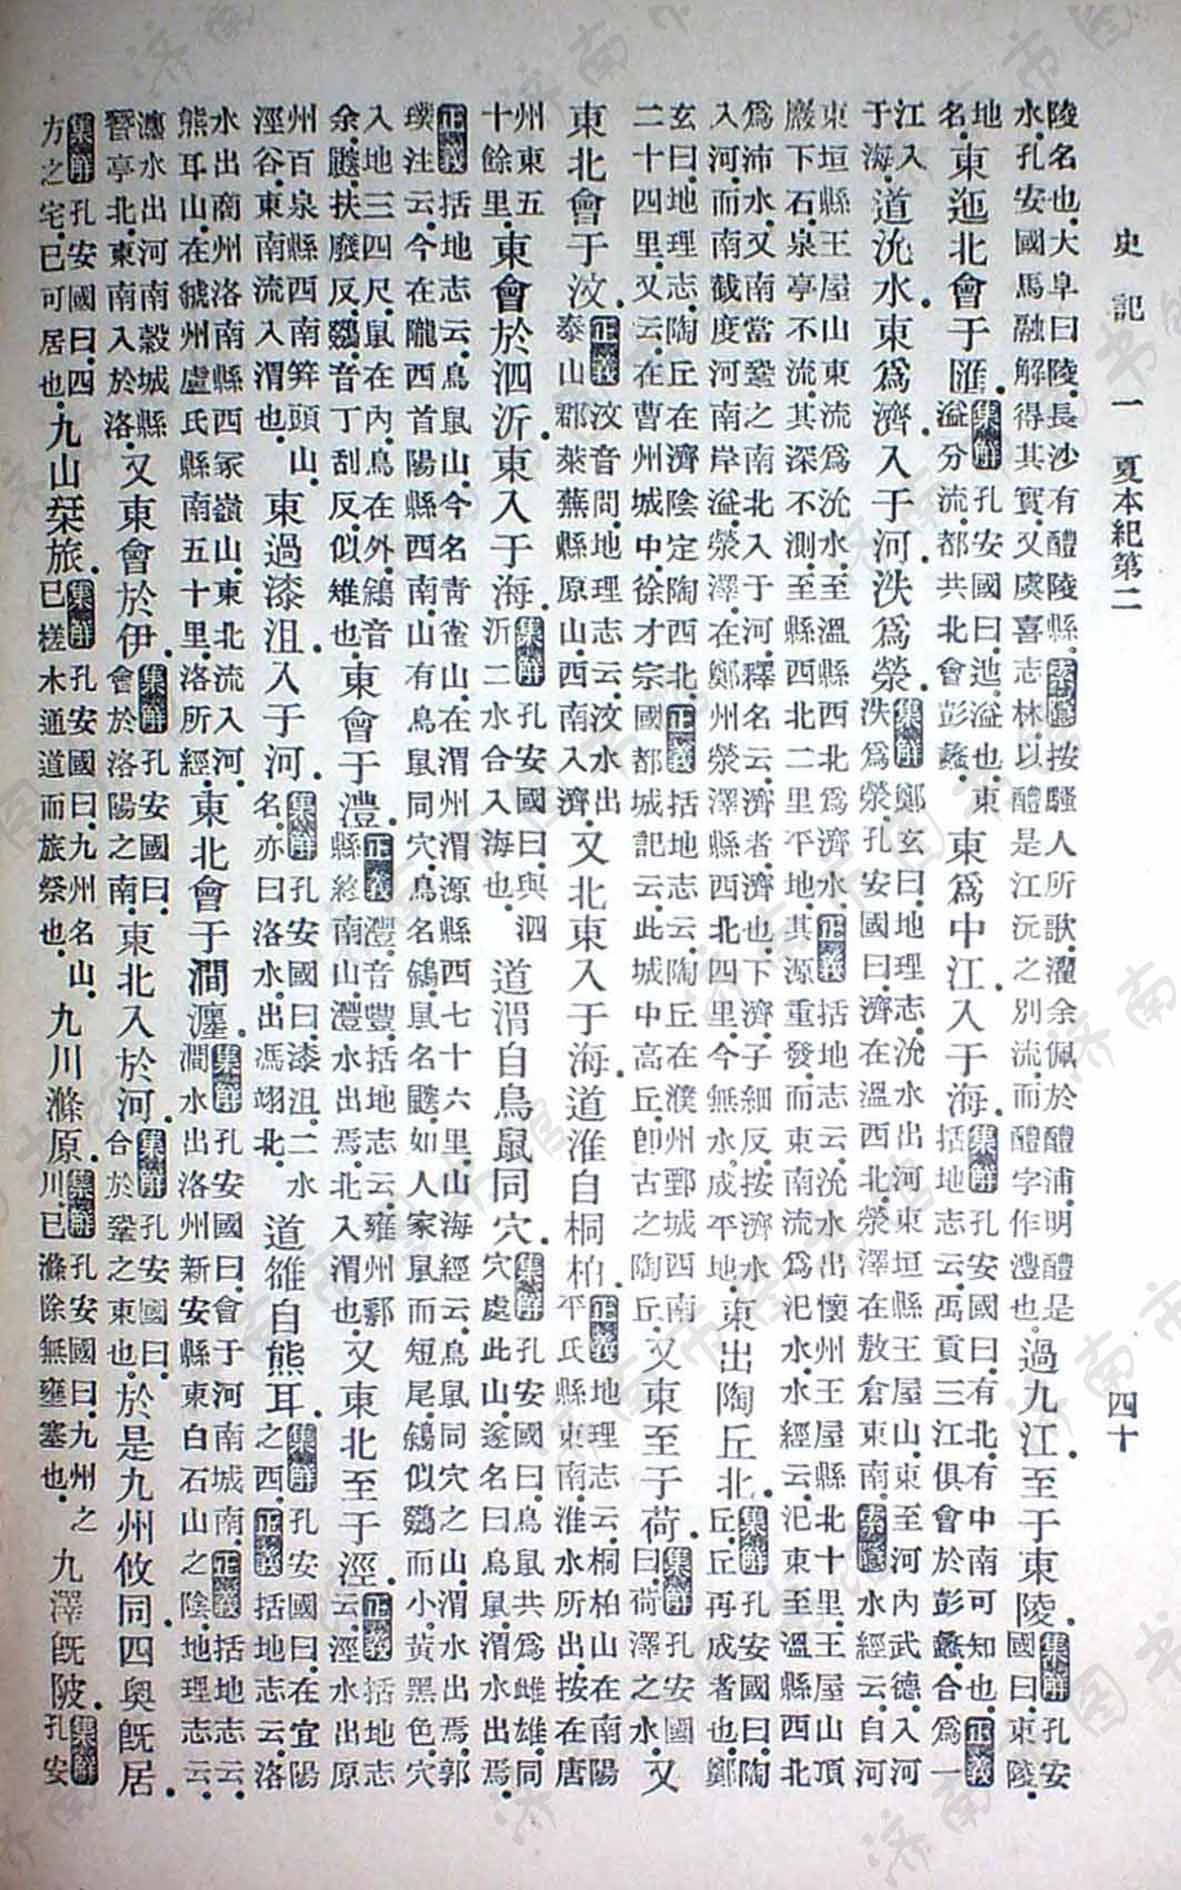 史記一　夏本紀第二　四十
陵名也。大阜曰陵。長沙有醴陵縣。索隱按騷人所歌。濯余佩於醴浦。明醴是
水。孔安國馬融解得其實。又虞喜志林以醴是江沅之別流。而醴字作澧也。
過九江。至于東陵。
集解孔安
國曰。東陵。
地
名。
東迆北會于匯。
集解孔安國曰。迆。溢也。東
溢分流。都共北會彭蠡。
東爲中江。入于海。
集解孔安國曰。有北。有中。南可知也。正義
括地志云。禹貢三江俱會於彭蠡。合爲一
江。入
于海。
道沇水。東爲濟。入于河。泆爲滎。
集解鄭玄曰。地理志。沇水出河東垣縣王屋山。東至河內武德入河。
泆爲滎。孔安國曰。濟在溫西北。滎澤在敖倉東南。索隱水經云。自河
東垣縣王屋山東流爲沇水。至溫縣西北爲濟水。正義括地志云。沇水出懷州王屋縣北十里王屋山頂
巖下石泉亭。不流。其深不測。至縣西北二里平地。其源重發。而東南流爲汜水。水經云。汜東至溫縣西北
爲泲水。又南當鞏之南。北入于河。釋名云。濟者濟也。下濟。子細反。按濟水
入河。而南截度河南岸溢。滎澤在鄭州滎澤縣西北四里。今無水。成平地。
東出陶丘北。
集解孔安國曰。陶
丘。丘再成者也。鄭
玄曰。地理志。陶丘在濟陰定陶西北。正義括地志云。陶丘在濮州鄄城西南
二十四里。又云。在曹州城中。徐才宗國都城記云。此城中高丘。卽古之陶丘。
又東至于荷。
集解孔安國
曰。荷澤之水。
又
東北會于汶。
正義汶音問。地理志云。汶水出
泰山郡萊蕪縣原山。西南入濟。
又北東入于海。道淮自桐柏。
正義地理志云。桐柏山在南陽
平氏縣東南。淮水所出。按在唐
州東五
十餘里。
東會於泗沂。東入于海。
集解孔安國曰。與泗
沂二水合入海也。
道渭自鳥鼠同穴。
集解孔安國曰。鳥鼠共爲雌雄。同
穴處此山。遂名曰鳥鼠。渭水出焉。
正義括地志云。鳥鼠山。今名青雀山。在渭州渭源縣西七十六里。山海經云。鳥鼠同穴之山。渭水出焉。郭
璞注云。今在隴西首陽縣西南。山有鳥鼠同穴。鳥名鵌。鼠名鼵。如人家鼠而短尾。鵌似鵽而小。黃黑色。穴
入地三四尺。鼠在內。鳥在外。鵌音
余。鼵。扶廢反。鵽音丁刮反。似雉也。
東會于灃。
正義灃音豐。括地志云。雍州鄠
縣終南山。灃水出焉。北入渭也。
又東北至于涇。
正義括地志
云。涇水出原
州百泉縣西南笄頭山。
涇谷。東南流入渭也。
東過漆沮。入于河。
集解孔安國曰。漆沮。二水
名。亦曰洛水。出馮翊北。
道雒自熊耳。
集解孔安國曰。在宜陽
之西。正義括地志云。洛
水出商州洛南縣西冢嶺山。東北流入河。
熊耳山。在虢州盧氏縣南五十里。洛所經。
東北會于澗瀍。
集解孔安國曰。會于河南城南。正義括地志云。
澗水出洛州新安縣東白石山之陰。地理志云。
瀍水出河南穀城縣
朁亭北。東南入於洛。
又東會於伊。
集解孔安國曰。
會於洛陽之南。
東北入於河。
集解孔安國曰。
合於鞏之東也。
於是九州攸同。四奧旣居。
集解孔安國曰。四
方之宅。已可居也。
九山栞旅。
集解孔安國曰。九州名山。
已槎木通道而旅祭也。
九川滌原。
集解孔安國曰。九州之
川。已滌除無壅塞也。
九澤旣陂。
集解
孔安